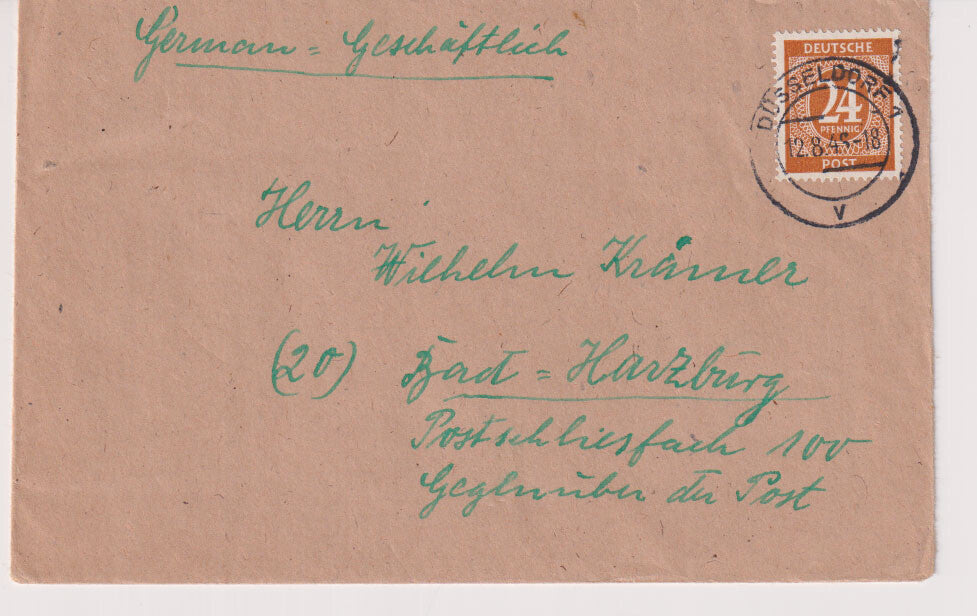 German = Geschäftlich
DEUTSCHE
24
PFENNIG
POST
DÜSSELDORF 1
12.8.46-18
v
Herrn
Wilhelm Krämer
(20) Bad = Harzburg
Postschliesfach 100
Gegenüber der Post